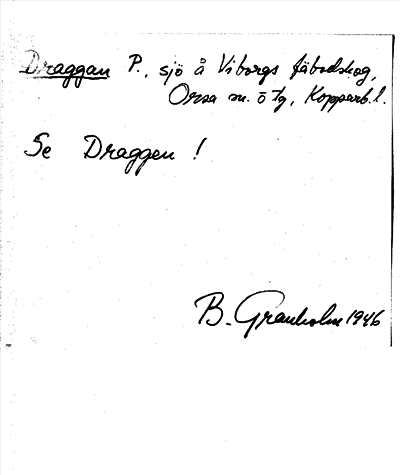 Draggan P., sjö å Viborgs fäbodskog,
Orsa sn. o tg, Kopparb. l.
Se Draggen!
B. Granholm 1946